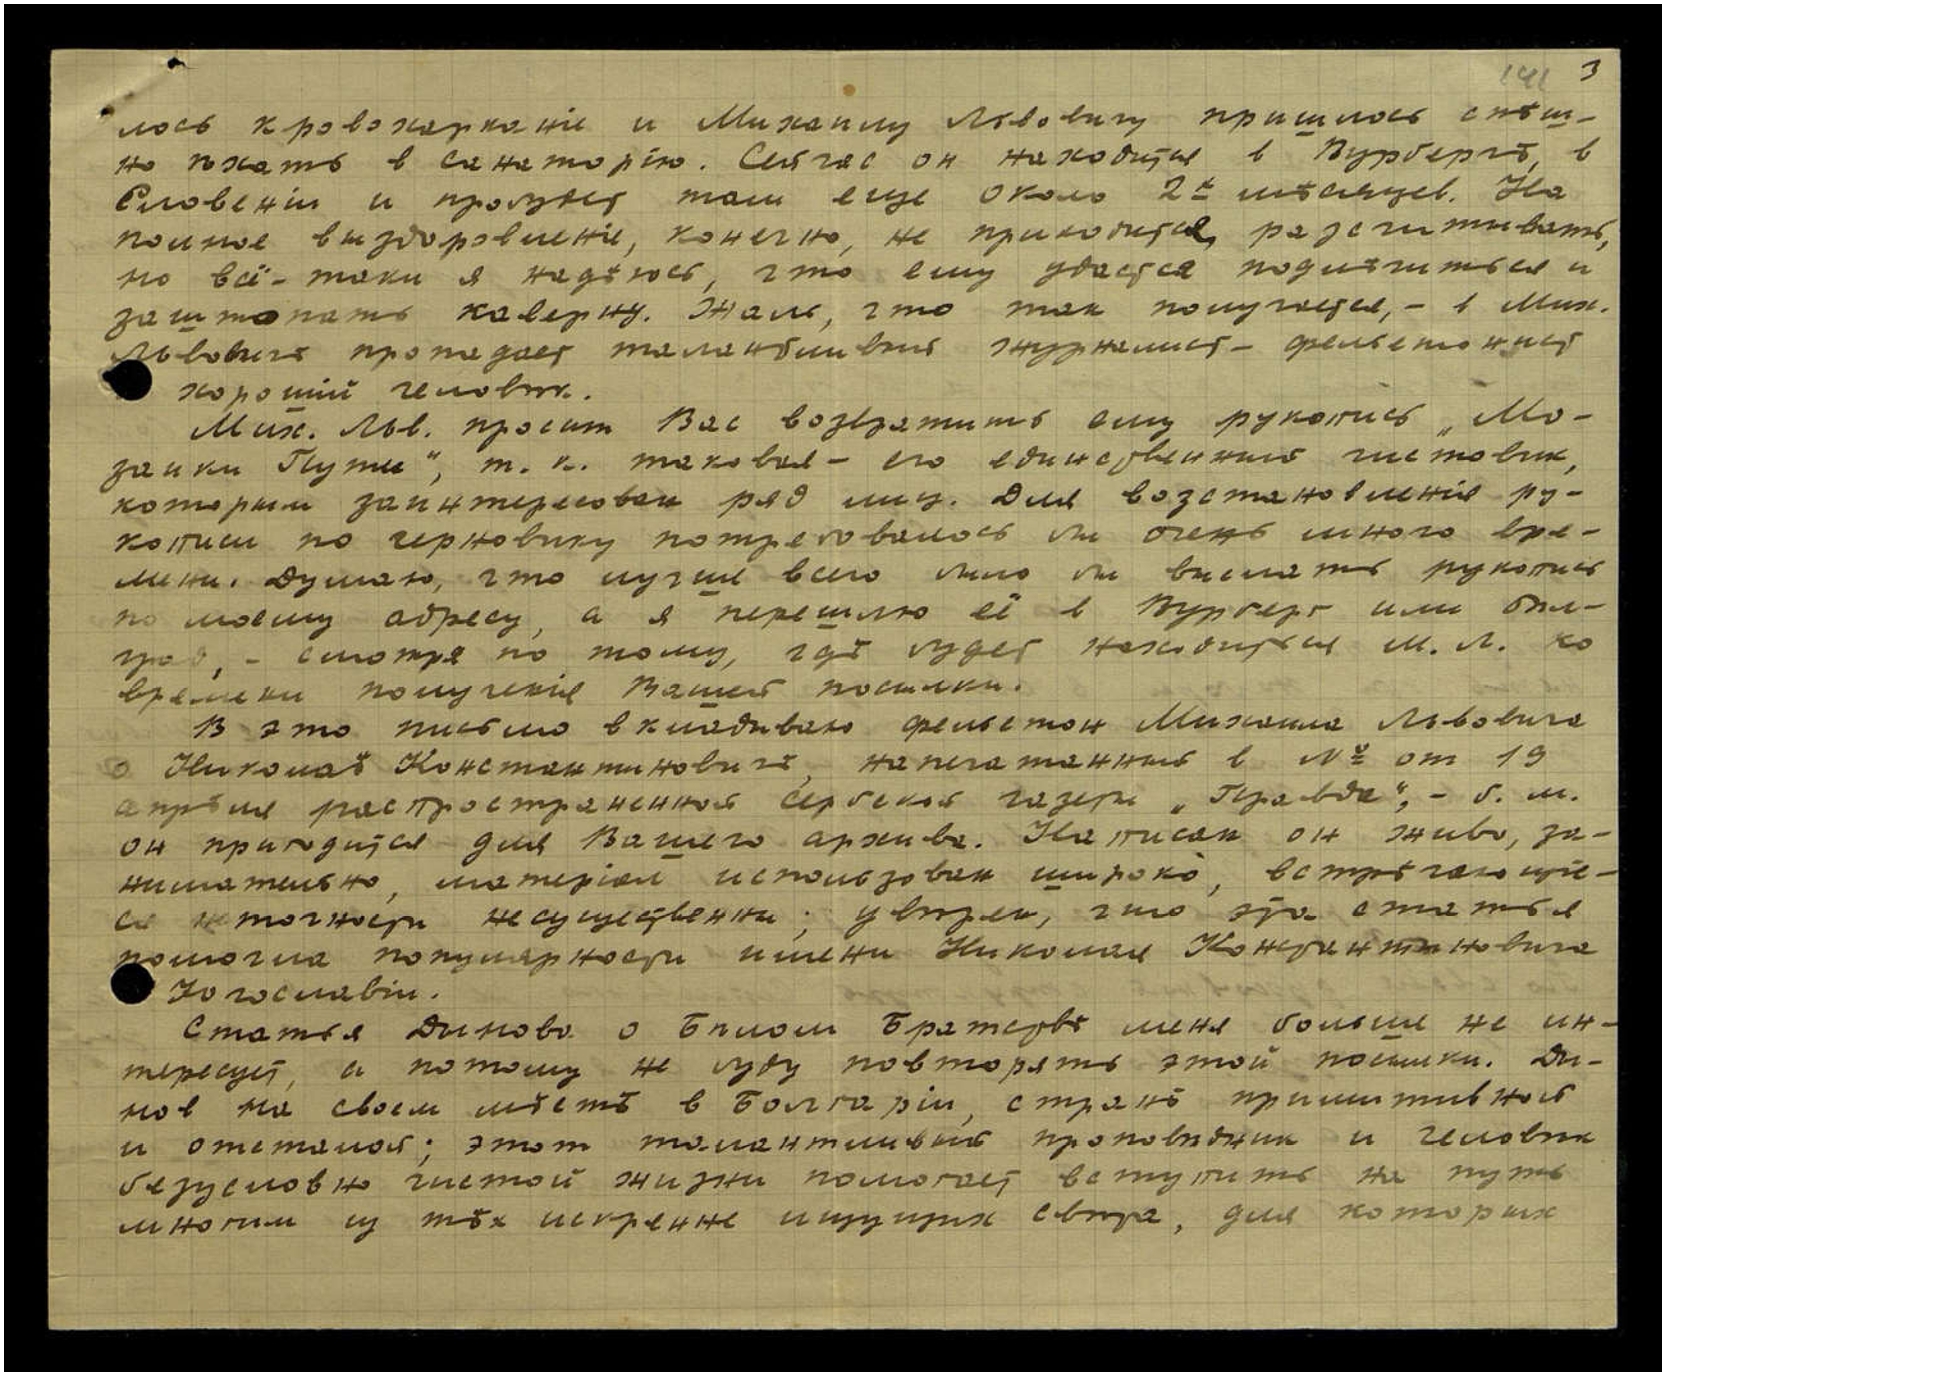 141 3
лось кровохарканіе и Михаилу Львовичу пришлось спѣш-
но ѣхать в санаторію. Сейчас он находится в Вурбергѣ, в
Словеніи и пробудет там еще около 2х мѣсяцев. На
полное выздоровленіе, конечно, не приходится разсчитывать,
но всё-таки я надѣюсь, что ему удастся подлѣчиться и
заштопать каверну. Жаль, что так получается, - в Мих.
Львовичѣ пропадает талантливый журналист-фельетонист
хорошій человѣк.
Мих. Льв. просит Вас возвратить ему рукопись „Мо-
заики Пути“, т. к. таковая - его единственный чистовик,
которым заинтересован ряд лиц. Для возстановленія ру-
кописи по черновику потребовалось бы очень много вре-
мени. Думаю, что лучше всего было бы выслать рукопись
по моему адресу, а я перешлю её в Вурберг или Бѣл-
град, - смотря по тому, гдѣ будет находиться М. Л. ко
времени полученія Вашей посылки.
В это письмо вкладываю фельетон Михаила Львовича
о Николаѣ Константиновичѣ, напечатанный в № от 19
апрѣля распространенной сербской газеты „Правда“, - б. м.
он пригодится для Вашего архива. Написан он живо, за-
нимательно, матеріал использован широко, встрѣчающіе-
ся неточности несущественны; увѣрен, что эта статья
помогла популярности имени Николая Константиновича
Югославіи.
Статья Дынова о Бѣлом Братствѣ меня больше не ин-
тересует, а потому не буду повторять этой посылки. Ды-
нов на своем мѣстѣ в Болгаріи, странѣ примитивной
и отсталой; этот талантливый проповѣдник и человѣк
безусловно чистой жизни помогает вступить на путь
многим из тѣх искренне ищущих свѣта, для которых